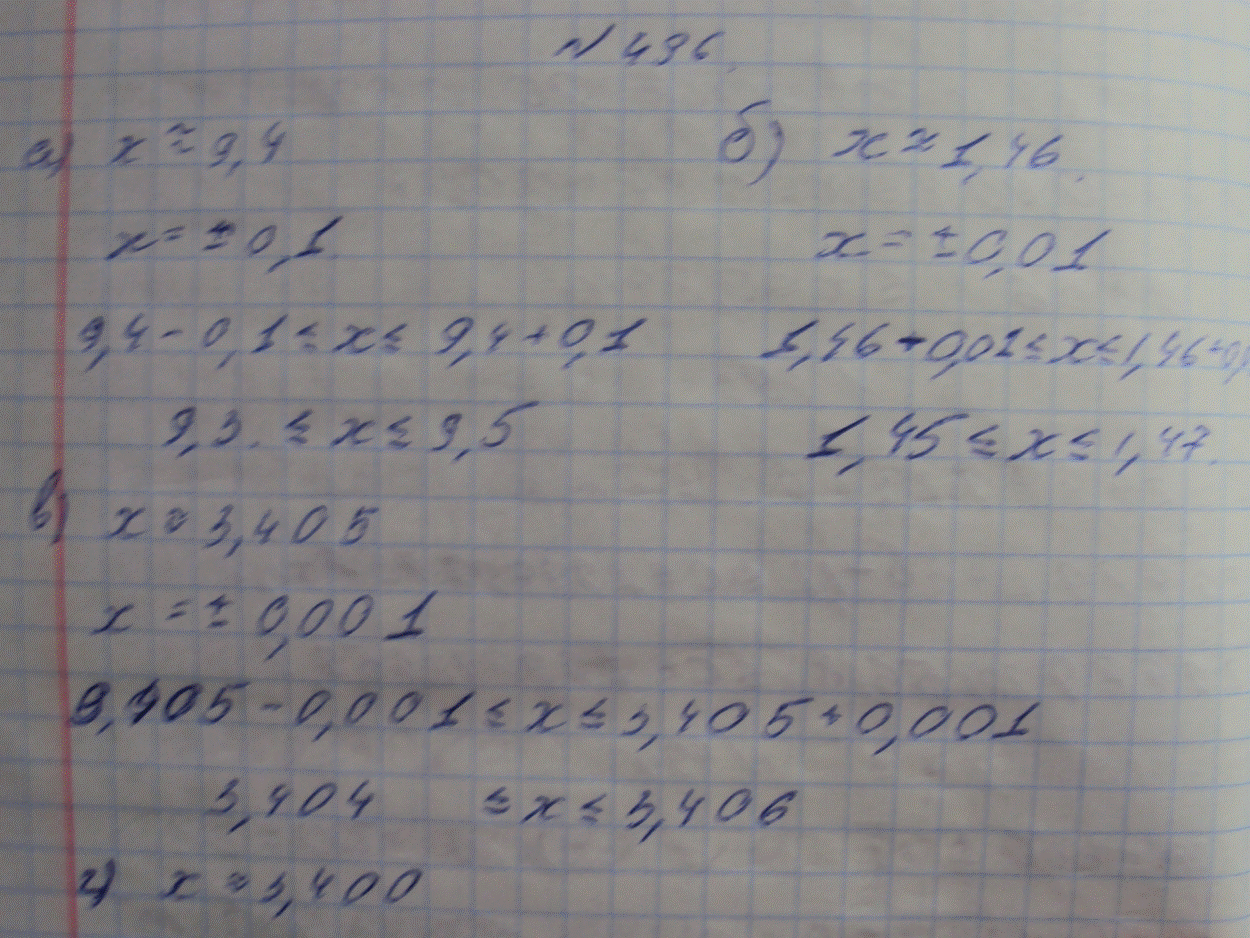 №496.
а) x ≈ 9,4
x = ± 0,1
9,4 - 0,1 ≤ x ≤ 9,4 + 0,1
9,3. ≤ x ≤ 9,5
б) x ≈ 1,46.
x = ± 0,01
1,46 - 0,01 ≤ x ≤ 1,46 + 0,
1,45 ≤ x ≤ 1,47.
в) x ≈ 3,405
x = ± 0,001
3,405 - 0,001 ≤ x ≤ 3,405 + 0,001
3,404 ≤ x ≤ 3,406
г) x ≈ 3,400